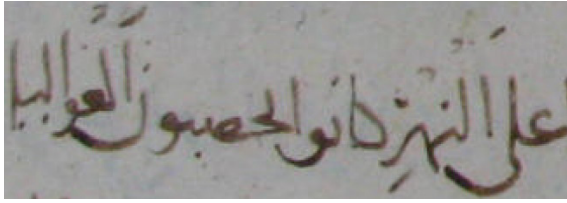 على النهر كانوا يخصبون العواليا